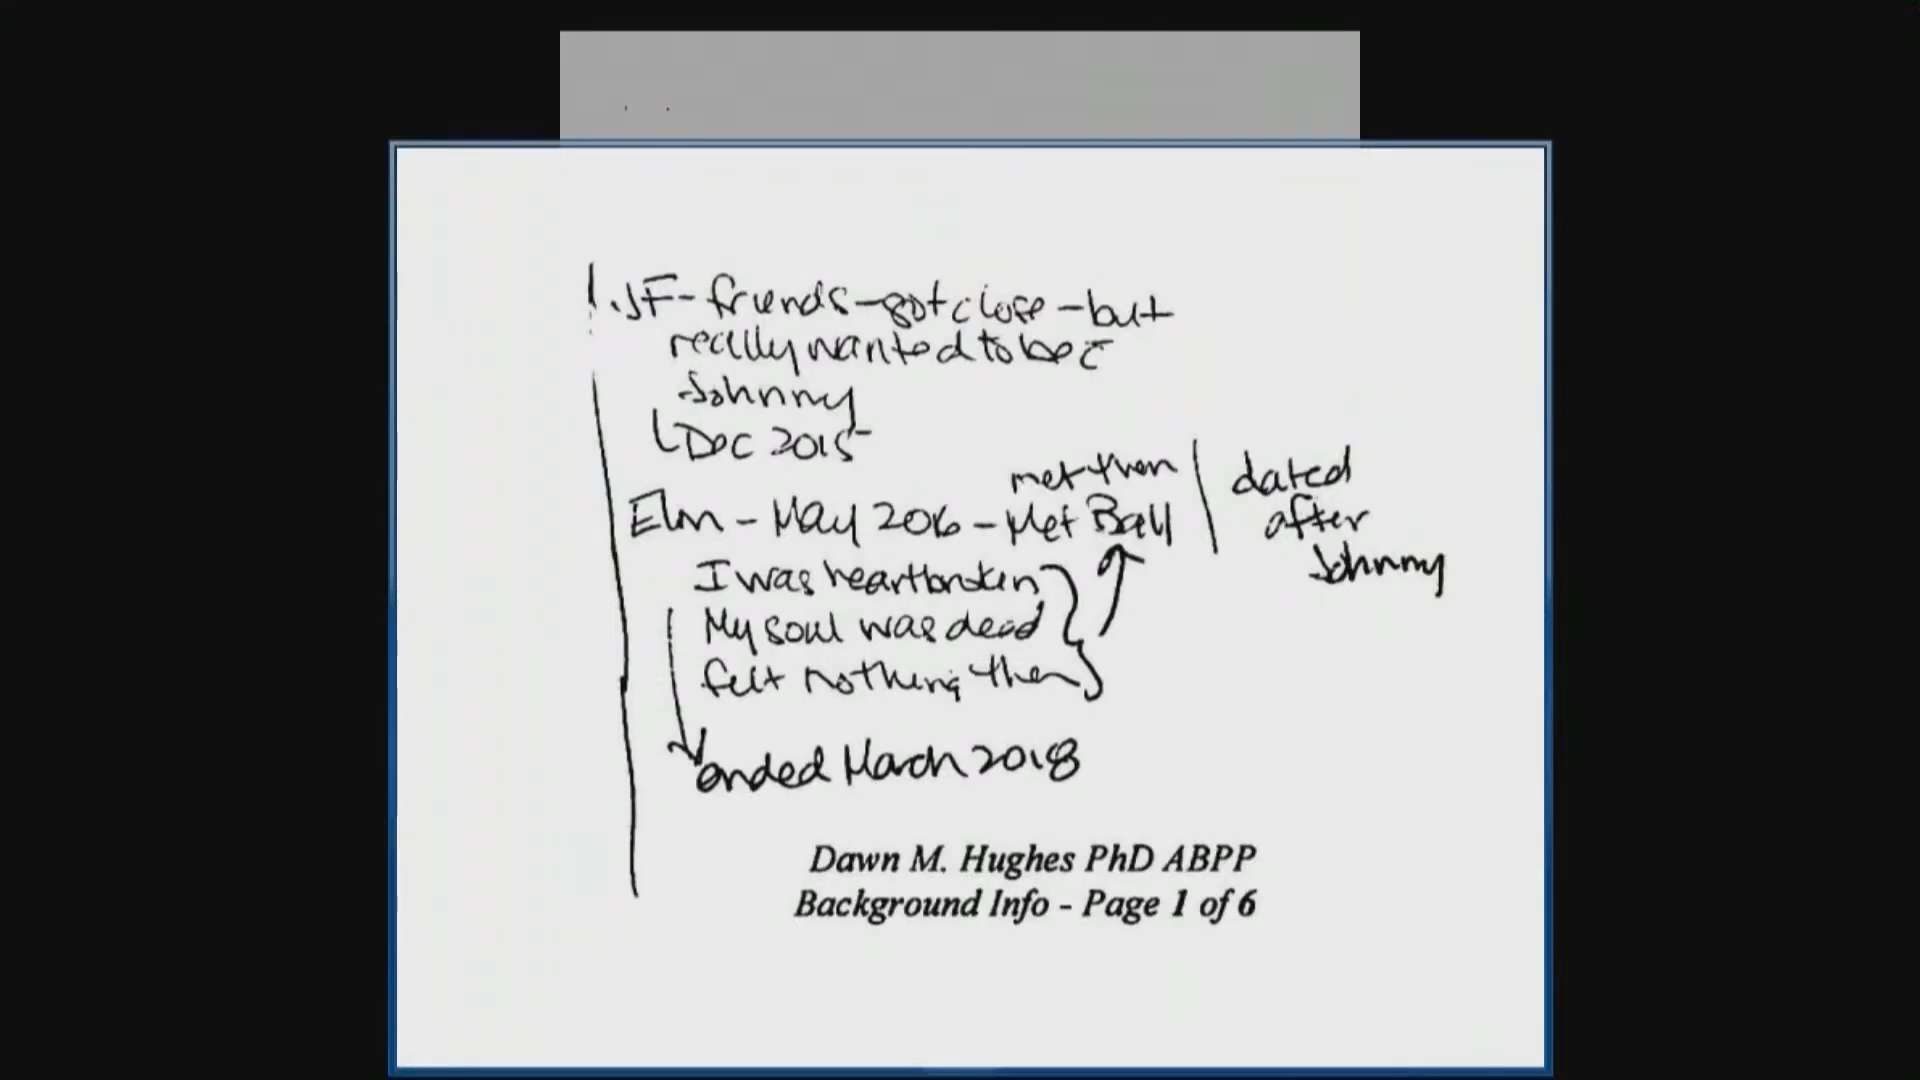 JF - friends - got close - but
really wanted to be c̄
Johnny
Dec 2015
met then
Elon - May 2016 - Met Ball
dated
after
Johnny
I was heartbroken
My soul was dead
felt nothing then
ended March 2018
Dawn M. Hughes PhD ABPP
Background Info - Page 1 of 6